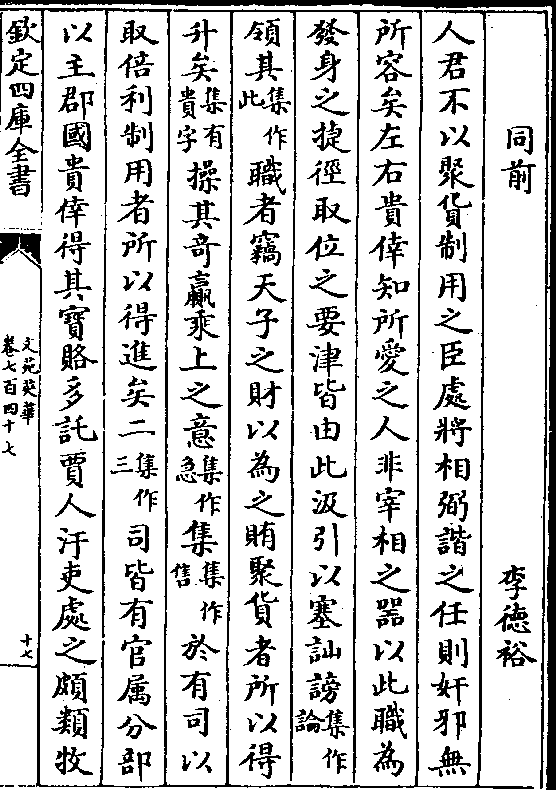 同前　李德裕
人君不以聚貨制用之臣處將相弼諧之任則奸邪無
所容矣左右貴倖知所愛之人非宰相之器以此職為
發身之捷徑取位之要津皆由此汲引以塞訕謗集作論
領其集作此職者竊天子之財以為之賄聚貨者所以得
升矣集有貴字操其奇贏乘上之意集作急集集作售於有司以
取倍利制用者所以得進矣二集作三司皆有官属分部
以主郡國貴倖得其寶賂多託賈人汙吏處之頗類牧
欽定四庫全書
文苑英華
卷七百四十七
十七